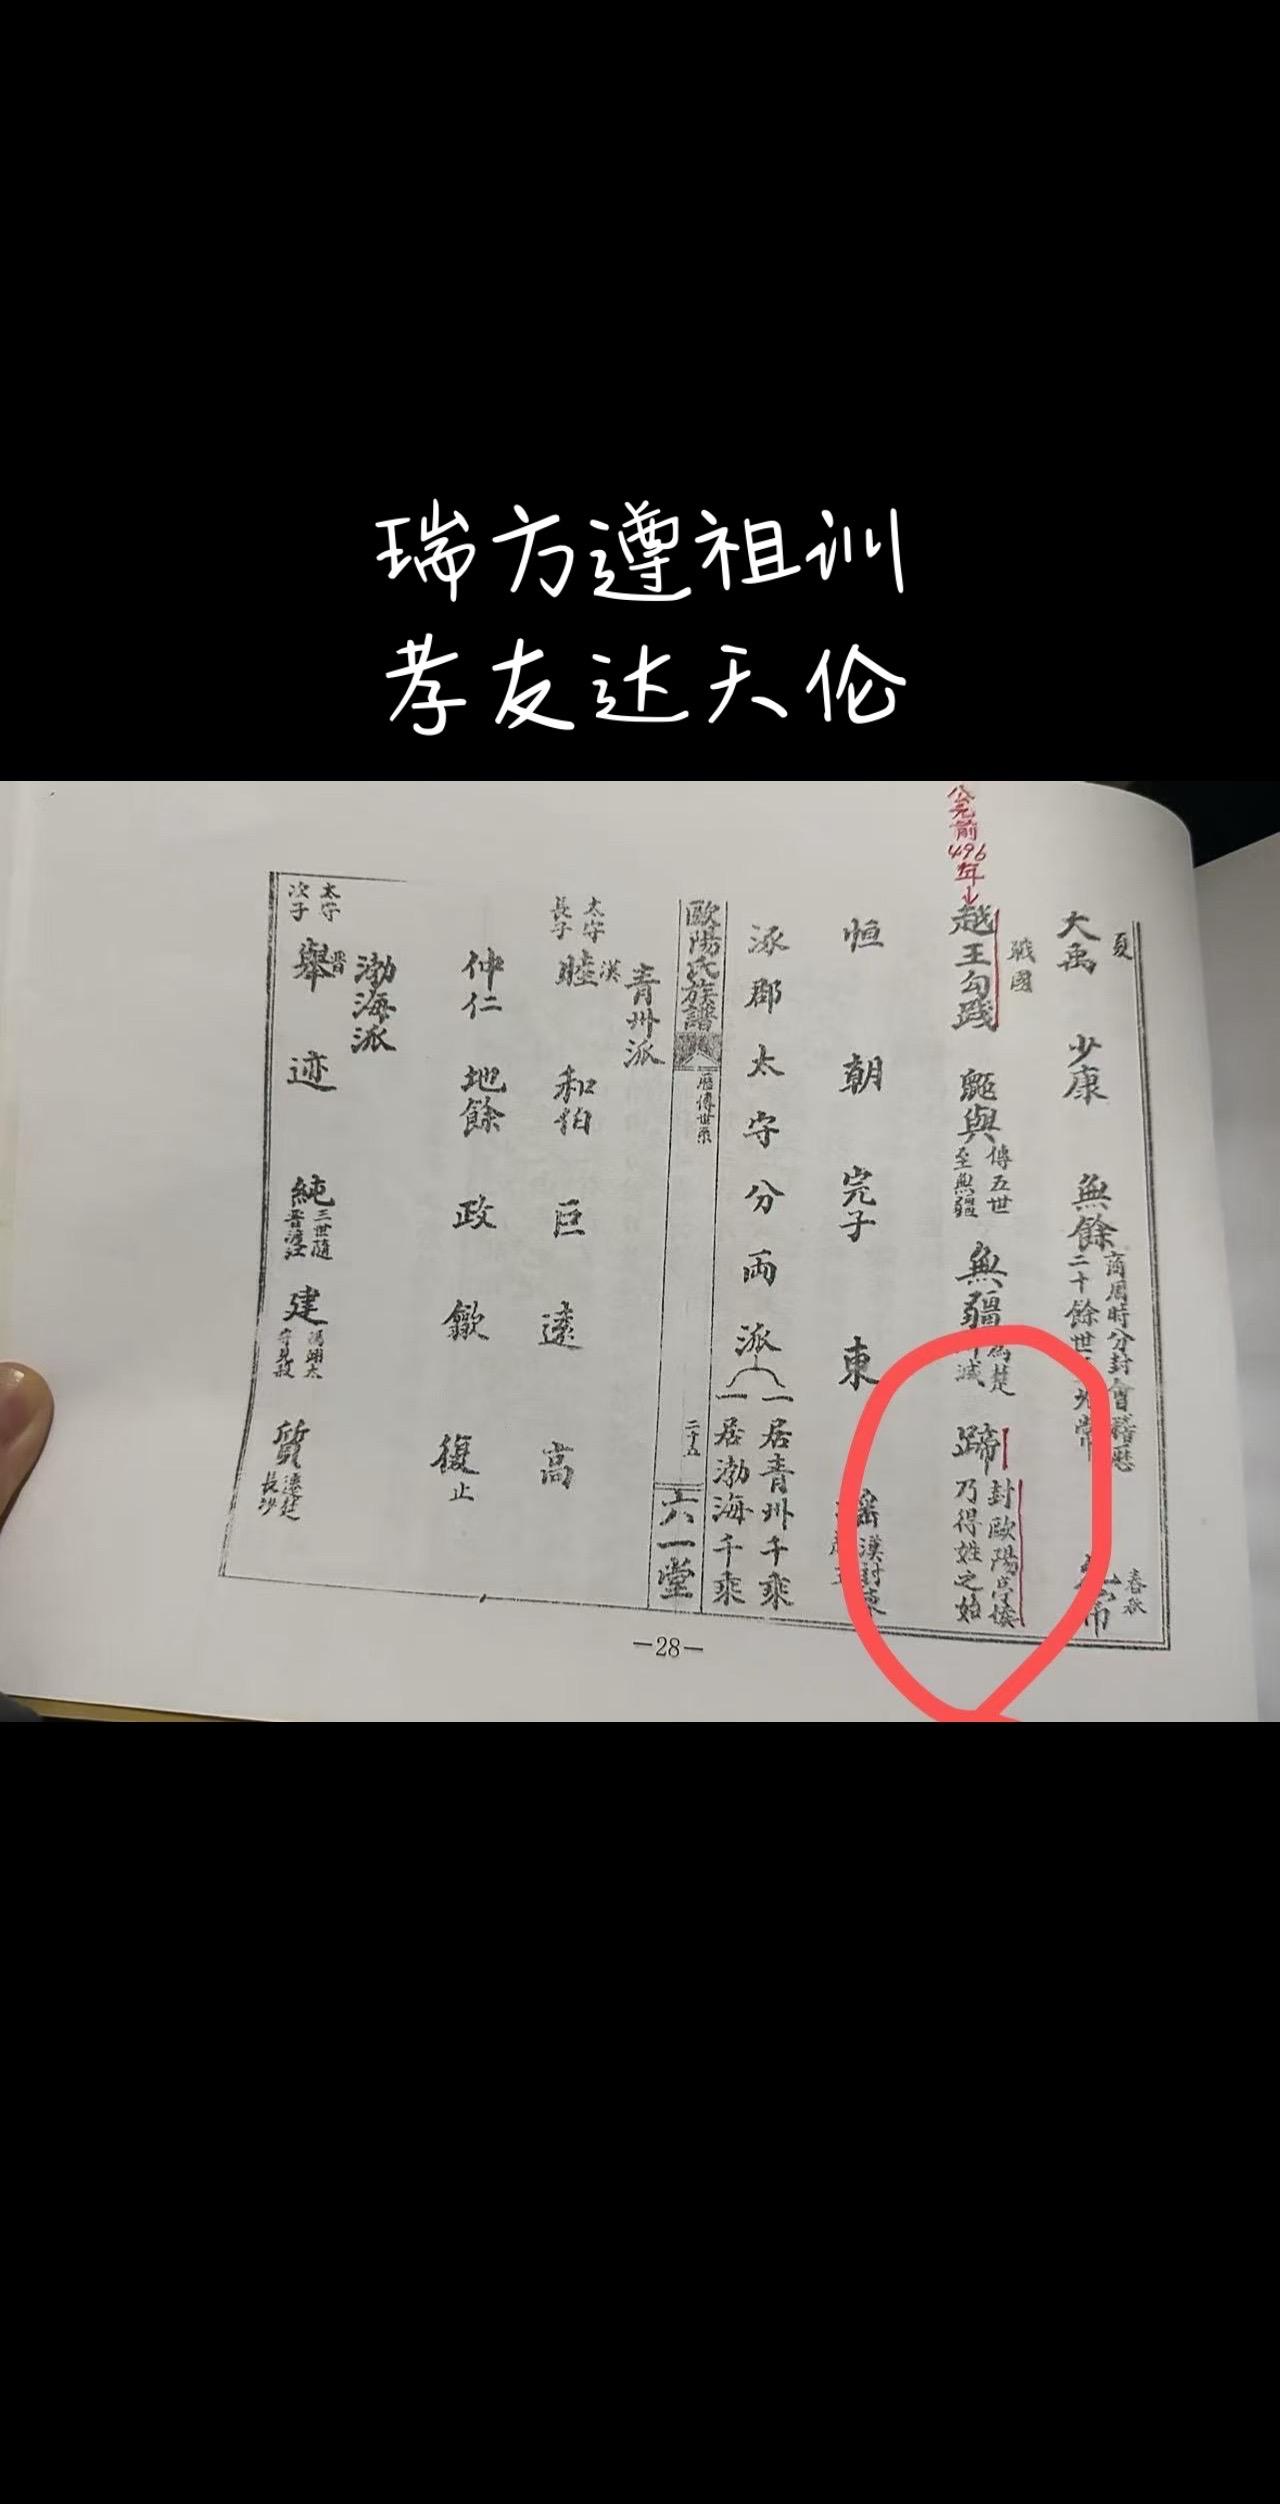 瑞方遵祖训
孝友达天伦
公元前496年
夏
大禹 少康 無餘 商周時分封會稽歷 二十餘世
春秋
戰國
越王勾踐 鼫與 傳五世至無疆 無疆 為楚 滅 蹄 封歐陽亭侯 乃得姓之始
恒 朝 完子 東 搖 漢封東
涿郡太守分兩派
一居青州千乘
一居渤海千乘
歐陽氏族譜 歷傳世系 二十五 六一堂
青州派
太守長子 漢 睦 和伯 巨 遠 高
仲仁 地餘 政 歙 復 止
渤海派
太守次子 晉 舉 迹 純 三世隨晉渡江 建 質 遷徙長沙
—28—